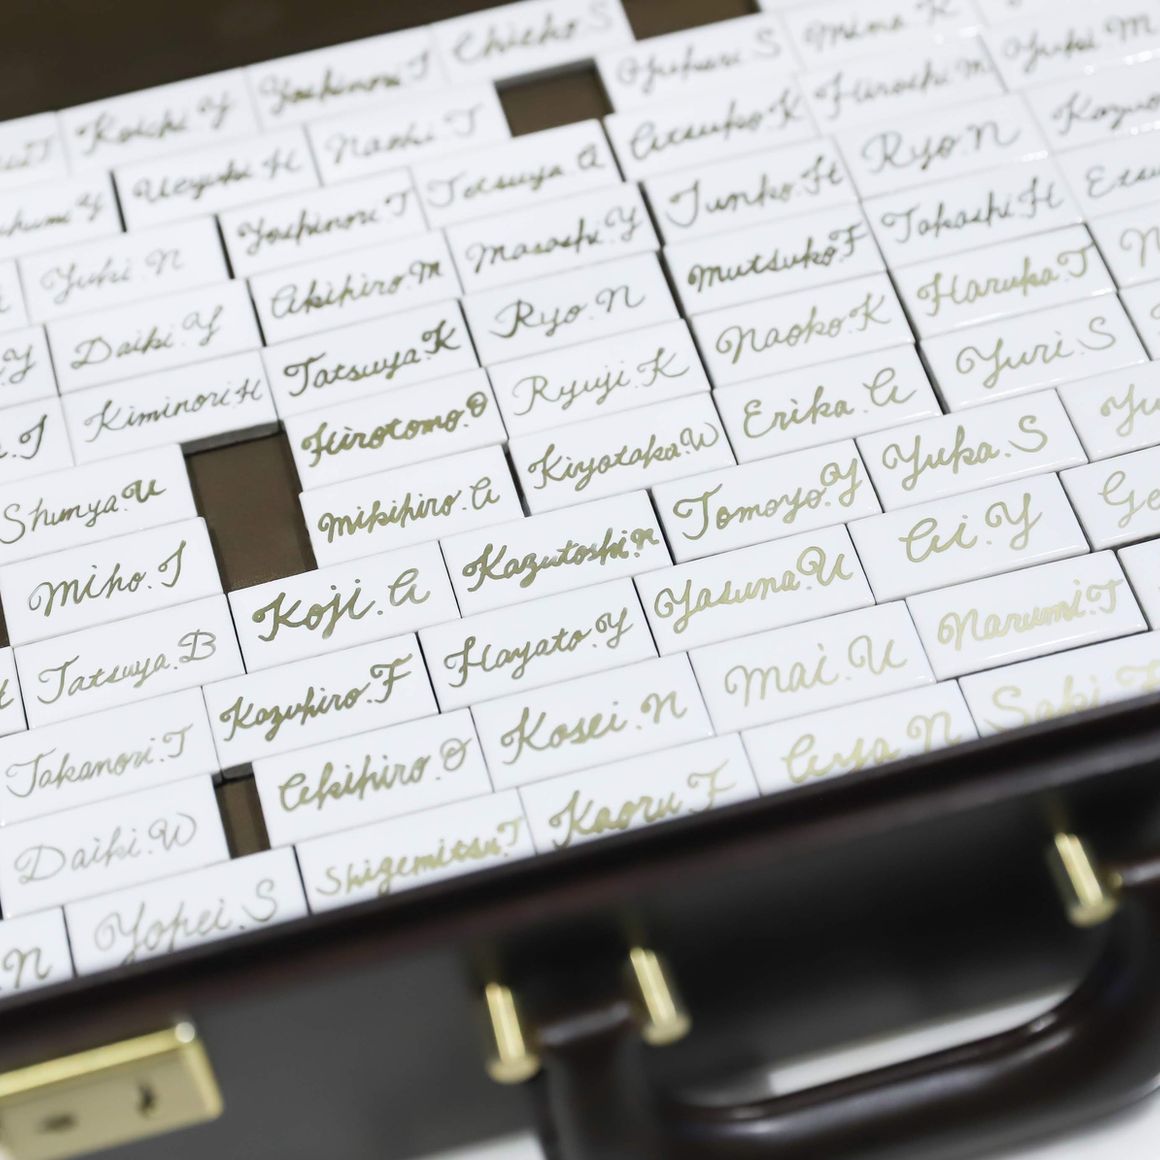 Chieko S
Yoshinori T
Koichi Y
Yukari S
Mima K
Yuki M
Naoki T
Atsuko K
Hiroshi M
Yoshinori T
Tetsuya A
Junko H
Ryo N
Yuki N
Akihiro M
Masashi Y
Mutsuko F
Takashi H
Daiki Y
Tatsuya K
Ryo N
Naoko K
Haruka T
Kiminori H
Hirotomo O
Ryuji K
Erika A
Yuri S
Shunya U
Mikihiro A
Kiyotaka W
Tomoyo Y
Yuka S
Miho T
Koji A
Kazutoshi N
Yasuna U
Ai Y
Tatsuya B
Kazuhiro F
Hayato Y
Mai U
Narumi T
Takanori T
Akihiro O
Kosei N
Arsa N
Saki F
Daiki W
Shigemitsu T
Kaoru F
Yohei S
N